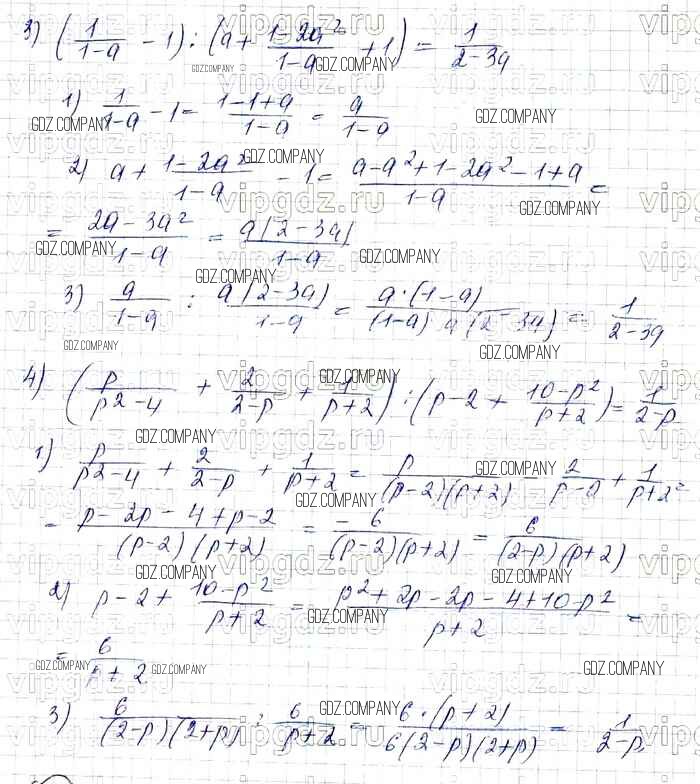 3) (1/(1-a) - 1) : (a + (1-2a²)/(1-a) + 1) = 1/(2-3a)
1) 1/(1-a) - 1 = (1-1+a)/(1-a) = a/(1-a)
2) a + (1-2a²)/(1-a) - 1 = (a-a²+1-2a²-1+a)/(1-a) =
= (2a-3a²)/(1-a) = a(2-3a)/(1-a)
3) a/(1-a) : a(2-3a)/(1-a) = a·(1-a)/((1-a) a(2-3a)) = 1/(2-3a)
4) (p/(p²-4) + 2/(2-p) + 1/(p+2)) : (p-2 + (10-p²)/(p+2)) = 1/(2-p)
1) p/(p²-4) + 2/(2-p) + 1/(p+2) = p/((p-2)(p+2)) - 2/(p-2) + 1/(p+2) =
= (p-2p-4+p-2)/((p-2)(p+2)) = -6/((p-2)(p+2)) = 6/((2-p)(p+2))
2) p-2 + (10-p²)/(p+2) = (p²+2p-2p-4+10-p²)/(p+2) =
= 6/(p+2)
3) 6/((2-p)(2+p)) : 6/(p+2) = 6·(p+2)/(6(2-p)(2+p)) = 1/(2-p)
vipgdz.ru
GDZ.COMPANY